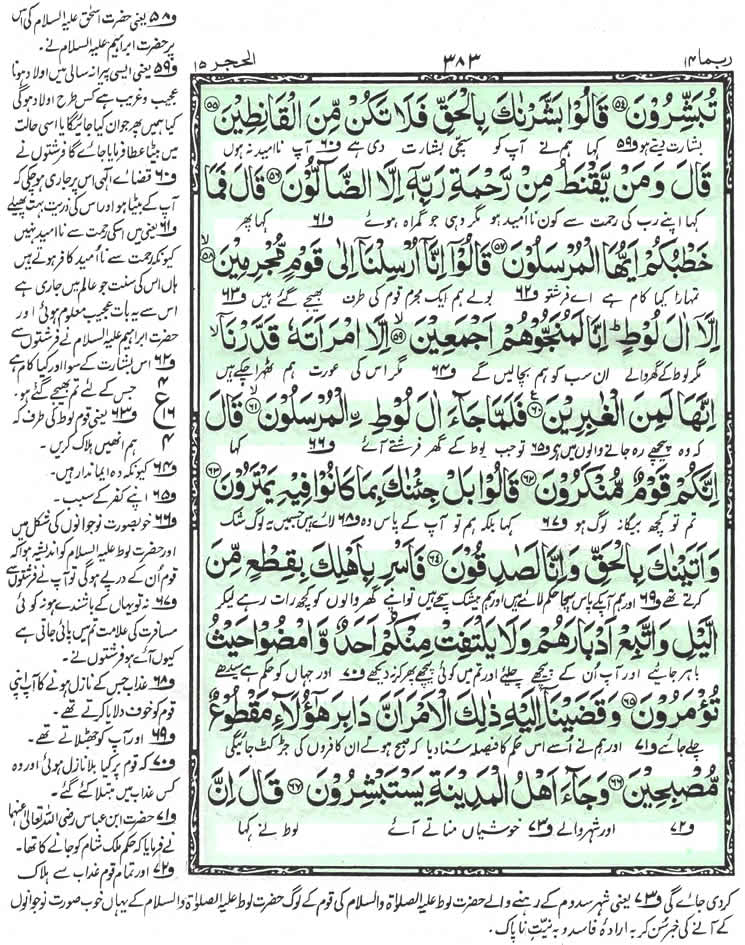 ربما ۱۴
۳۸۳
الحجر ۱۵
تُبَشِّرُوْنَ ﴿۵۴﴾ قَالُوْا بَشَّرْنٰكَ بِالْحَقِّ فَلَا تَكُنْ مِّنَ الْقَانِطِيْنَ ﴿۵۵﴾
بشارت دیتے ہو و۵۹ کہا ہم نے آپ کو سچی بشارت دی ہے و۶۰ آپ ناامید نہ ہوں
قَالَ وَمَنْ يَّقْنَطُ مِنْ رَّحْمَةِ رَبِّهٖۤ اِلَّا الضَّآلُّوْنَ ﴿۵۶﴾ قَالَ فَمَا
کہا اپنے رب کی رحمت سے کون ناامید ہو مگر وہی جو گمراہ ہوئے و۶۱ کہا پھر
خَطْبُكُمْ اَيُّهَا الْمُرْسَلُوْنَ ﴿۵۷﴾ قَالُوْۤا اِنَّاۤ اُرْسِلْنَاۤ اِلٰى قَوْمٍ مُّجْرِمِيْنَ ﴿۵۸﴾
تمہارا کیا کام ہے اے فرشتو و۶۲ بولے ہم ایک مجرم قوم کی طرف بھیجے گئے ہیں و۶۳
اِلَّاۤ اٰلَ لُوْطٍ ؕ اِنَّا لَمُنَجُّوْهُمْ اَجْمَعِيْنَ ﴿۵۹﴾ اِلَّا امْرَاَتَهٗ قَدَّرْنَاۤ
مگر لوط کے گھر والے ان سب کو ہم بچالیں گے و۶۴ مگر اس کی عورت ہم ٹھہرا چکے ہیں
اِنَّهَا لَمِنَ الْغٰبِرِيْنَ ﴿۶۰﴾ فَلَمَّا جَآءَ اٰلَ لُوْطِ ࣙالْمُرْسَلُوْنَ ﴿۶۱﴾ قَالَ
کہ وہ پیچھے رہ جانے والوں میں ہے و۶۵ تو جب لوط کے گھر فرشتے آئے و۶۶ کہا
اِنَّكُمْ قَوْمٌ مُّنْكَرُوْنَ ﴿۶۲﴾ قَالُوْا بَلْ جِئْنٰكَ بِمَا كَانُوْا فِيْهِ يَمْتَرُوْنَ ﴿۶۳﴾
تم تو کچھ بیگانہ لوگ ہو و۶۷ کہا بلکہ ہم تو آپ کے پاس وہ و۶۸ لائے ہیں جسمیں یہ لوگ شک
وَاَتَيْنٰكَ بِالْحَقِّ وَاِنَّا لَصٰدِقُوْنَ ﴿۶۴﴾ فَاَسْرِ بِاَهْلِكَ بِقِطْعٍ مِّنَ
کرتے تھے و۶۹ اور ہم آپکے پاس سچا حکم لائے ہیں اور ہم بیشک سچے ہیں تو اپنے گھر والوں کو کچھ رات رہے لیکر
الَّيْلِ وَاتَّبِعْ اَدْبَارَهُمْ وَلَا يَلْتَفِتْ مِنْكُمْ اَحَدٌ وَّامْضُوْا حَيْثُ
باہر جائیے اور آپ اُن کے پیچھے چلئے اور تم میں کوئی پیچھے پھر کر نہ دیکھے و۷۰ اور جہاں کو حکم ہے سیدھے
تُؤْمَرُوْنَ ﴿۶۵﴾ وَقَضَيْنَاۤ اِلَيْهِ ذٰلِكَ الْاَمْرَ اَنَّ دَابِرَ هٰۤؤُلَآءِ مَقْطُوْعٌ
چلے جائیے و۷۱ اور ہم نے اُسے اس حکم کا فیصلہ سُنا دیا کہ صبح ہوتے ان کافروں کی جڑ کٹ جائیگی
مُّصْبِحِيْنَ ﴿۶۶﴾ وَجَآءَ اَهْلُ الْمَدِيْنَةِ يَسْتَبْشِرُوْنَ ﴿۶۷﴾ قَالَ اِنَّ
و۷۲ اور شہر والے و۷۳ خوشیاں مناتے آئے لوط نے کہا
و۵۸ یعنی حضرت اسحٰق علیہ السلام کی اس
پر حضرت ابراہیم علیہ السلام نے۔
و۵۹ یعنی ایسی پیرانہ سالی میں اولاد ہونا
عجیب و غریب ہے کس طرح اولاد ہوگی
کیا ہمیں پھر جوان کیا جائیگا یا اسی حالت
میں بیٹا عطا فرمایا جائے گا فرشتوں نے
و۶۰ قضائے الٰہی اس پر جاری ہو چکی کہ
آپ کے بیٹا ہو اور اس کی ذریت بہت پھیلے
و۶۱ یعنی میں اسکی رحمت سے ناامید نہیں
کیونکہ رحمت سے ناامید کافر ہوتے ہیں
ہاں اس کی سنت جو عالم میں جاری ہے
اس سے یہ بات عجیب معلوم ہوئی اور
حضرت ابراہیم علیہ السلام نے فرشتوں سے
و۶۲ اس بشارت کے سوا اور کیا کام ہے
جس کے لئے تم بھیجے گئے ہو۔
۴ ع ۱۶ ۴
و۶۳ یعنی قوم لوط کی طرف کہ
ہم انھیں ہلاک کریں۔
و۶۴ کیونکہ وہ ایماندار ہیں۔
و۶۵ اپنے کفر کے سبب۔
و۶۶ خوبصورت نوجوانوں کی شکل میں
اور حضرت لوط علیہ السلام کو اندیشہ ہوا کہ
قوم اُن کے درپے ہوگی تو آپ نے فرشتوں سے
و۶۷ نہ تو یہاں کے باشندے ہو نہ کوئی
مسافرت کی علامت تم میں پائی جاتی ہے
کیوں آئے ہو فرشتوں نے۔
و۶۸ عذاب جس کے نازل ہونے کا آپ اپنی
قوم کو خوف دلایا کرتے تھے۔
و۶۹ اور آپ کو جھٹلاتے تھے۔
و۷۰ کہ قوم پر کیا بلا نازل ہوئی اور وہ
کس عذاب میں مبتلا کئے گئے۔
و۷۱ حضرت ابن عباس رضی اللہ تعالیٰ عنہما
نے فرمایا کہ حکم ملک شام کو جانے کا تھا۔
و۷۲ اور تمام قوم عذاب سے ہلاک
کردی جائے گی و۷۳ یعنی شہر سدوم کے رہنے والے حضرت لوط علیہ الصلوٰۃ والسلام کی قوم کے لوگ حضرت لوط علیہ الصلوٰۃ والسلام کے یہاں خوب صورت نوجوانوں
کے آنے کی خبر سُن کر بہ ارادۂ فاسد و بہ نیّتِ ناپاک۔